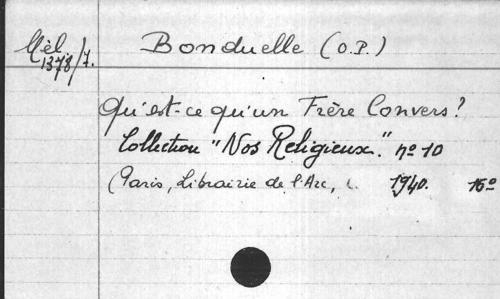 Mél. 1378/7.
Bonduelle (O.P.)
Qu'est-ce qu'un Frère Convers?
Collection "Nos Religieux." nº 10
(Paris, Librairie de l'Arc, 1940. 16º